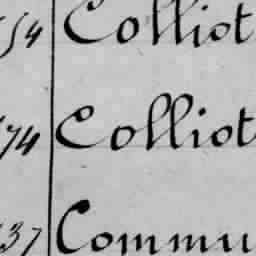 54 Colliot
74 Colliot
37 Commu